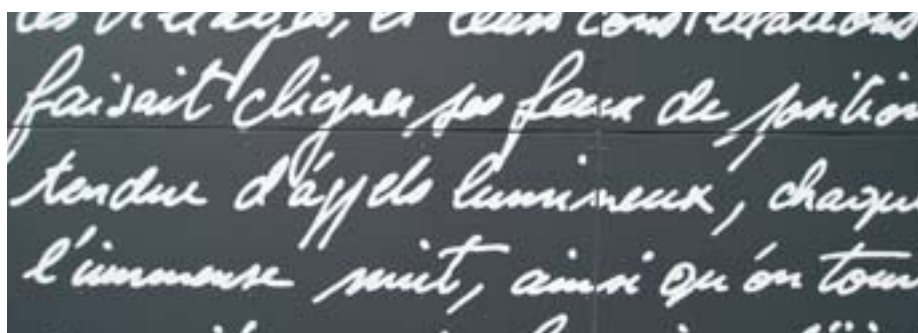 les villages, et leurs constellations
faisait cligner ses feux de position
tendue d'appels lumineux, chaque
l'immense nuit, ainsi qu'on tour